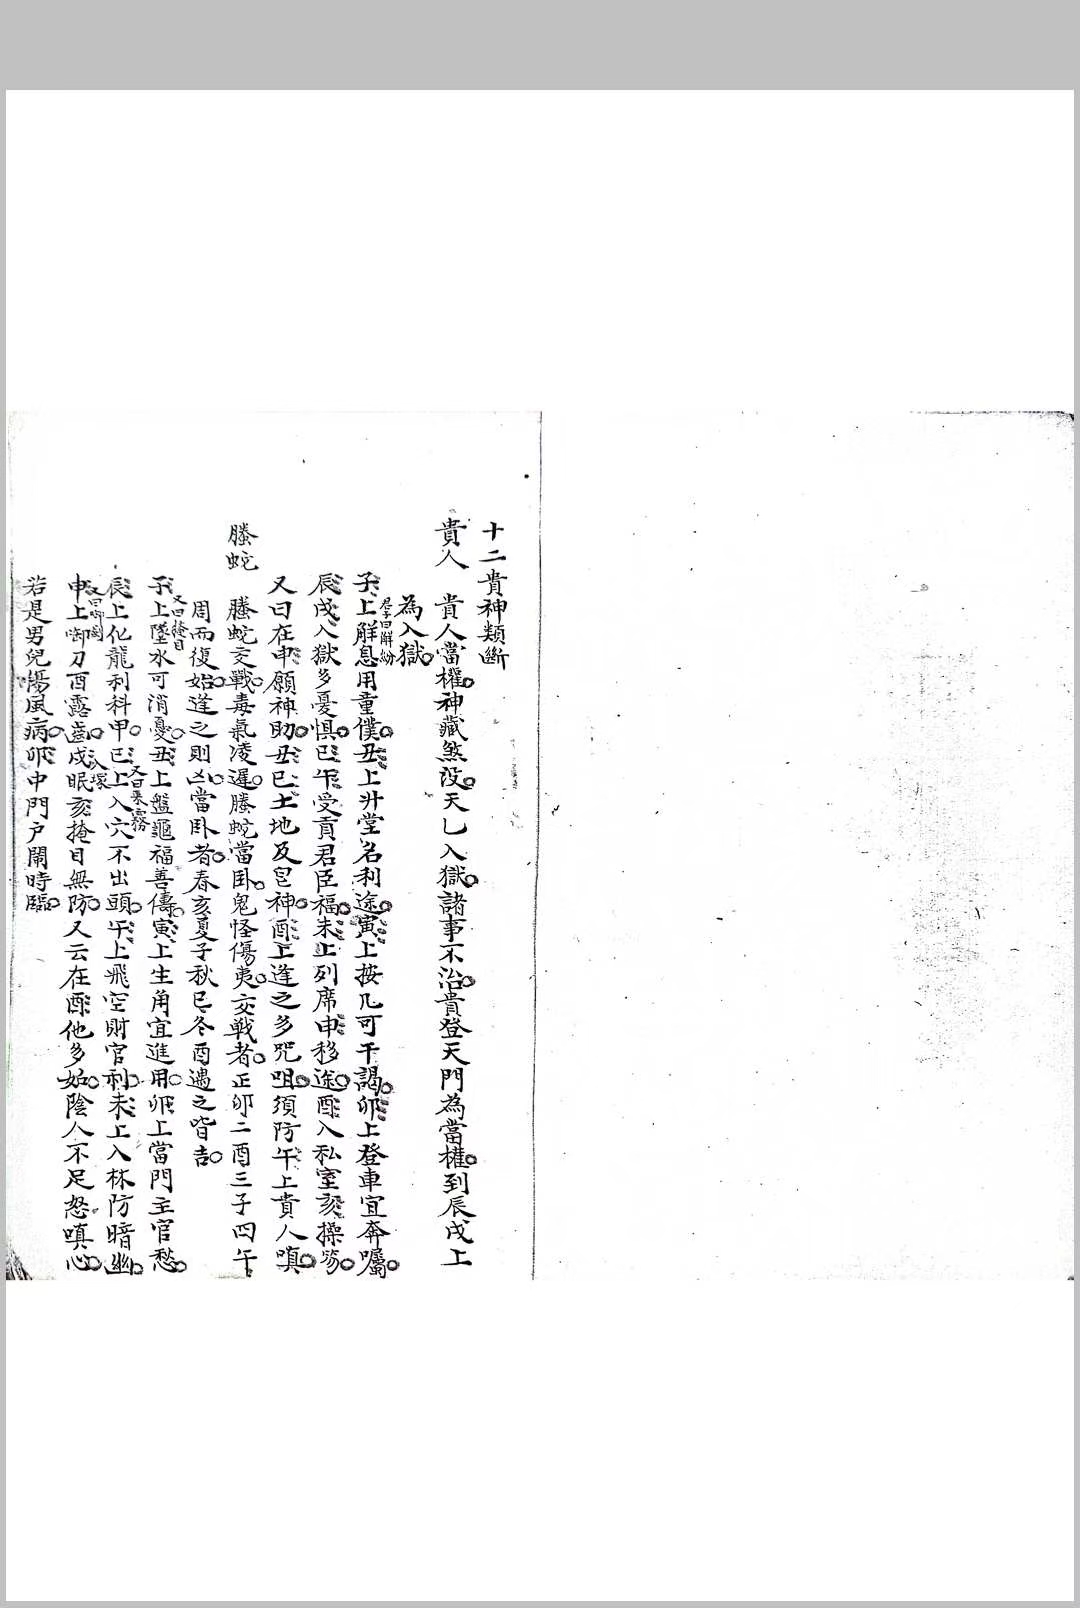 十二貴神類斷
貴人　貴人當權。神藏煞沒。天乚入獄。諸事不治。貴登天門為當權。到辰戌上
為入獄。
子上解息用童僕。丑上升堂名利途。寅上按几可干謁。卯上登車宜奔囑。
辰戌入獄多憂懼。巳午受貢君臣福。未上列席申移途。酉入私室亥操笏。
又曰在申願神助。丑巳土地及皀神。酉上逢之多咒咀。須防午上貴人嗔。
螣蛇　螣蛇交戰。毒氣凌遲。螣蛇當卧。鬼怪傷夷。交戰者。正卯二酉三子四午
周而復始。逢之則凶。當卧者。春亥夏子秋巳冬酉遇之皆吉。
子上墜水可消憂。丑上盤龜福善儔。寅上生角宜進用。卯上當門主官愁。
又曰掩目
辰上化龍利科甲。巳上入穴不出頭。午上飛空財官利。未上入林防暗幽。
又曰乘霧
申上啣刀酉露齒。戌眠亥掩目無防。又云在酉他多妬。陰人不足怒嗔心。
入塚
若是男兒傷風病。卯中門戶鬧時臨。